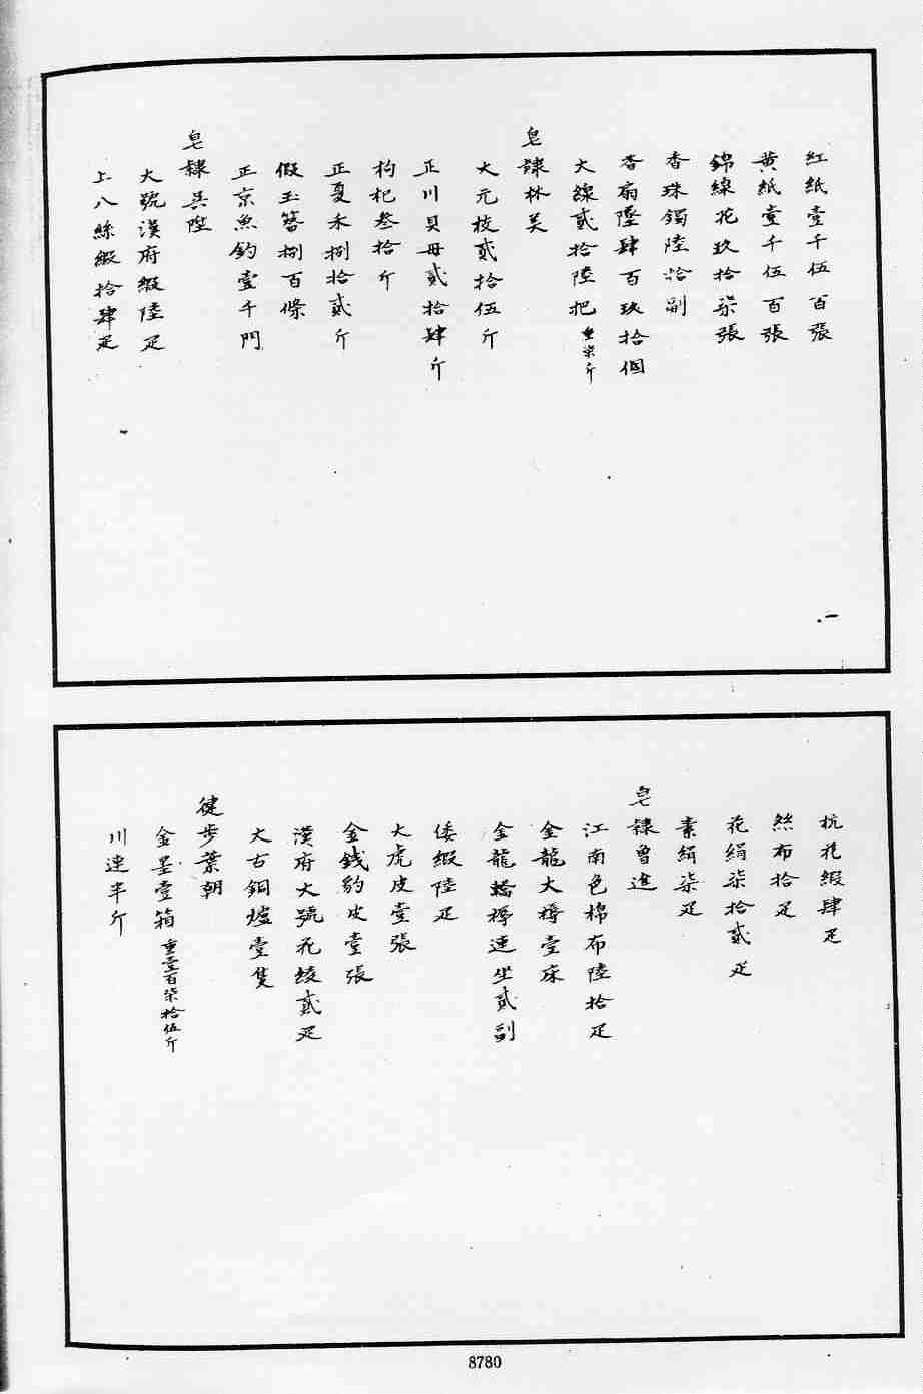 紅紙壹千伍百張
黃紙壹千伍百張
錦線花玖拾柒張
香珠鐲陸拾副
香扇墜肆百玖拾個
大線貳拾陸把重柒斤
皂隸林美
大元枝貳拾伍斤
正川貝母貳拾肆斤
枸杞叁拾斤
正夏禾捌拾貳斤
假玉簪捌百條
正京魚鈎壹千門
皂隸吳陞
大號漢府緞陸疋
上八絲緞拾肆疋
杭花緞肆疋
絲布拾疋
花絹柒拾貳疋
素絹柒疋
皂隸曾進
江南色棉布陸拾疋
金龍大褥壹床
金龍轎褥連坐貳副
倭緞陸疋
大虎皮壹張
金錢豹皮壹張
漢府大號花綾貳疋
大古銅爐壹隻
健步葉朝
金墨壹箱重壹百柒拾伍斤
川連半斤
8780